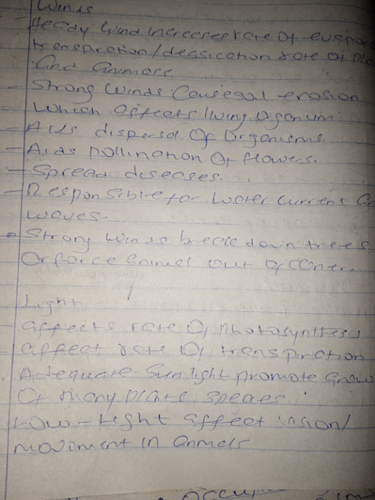 Winds
- Heady wind increases rate of evapo
transpiration/dessication rate of pl
and animals
- Strong winds causegal erosion
- Which affects living organism
- Aids dispersal of organisms
- Aids pollination of flowers.
- Spread diseases.
- Responsible for water current an
waves.
Strong winds break down trees
Or force animal out of
Light
affects rate of photosynthesis
affect rate of transpiration
Adequate sunlight promote grow
Of many plant species
Low-light affect vision/
movement in animals